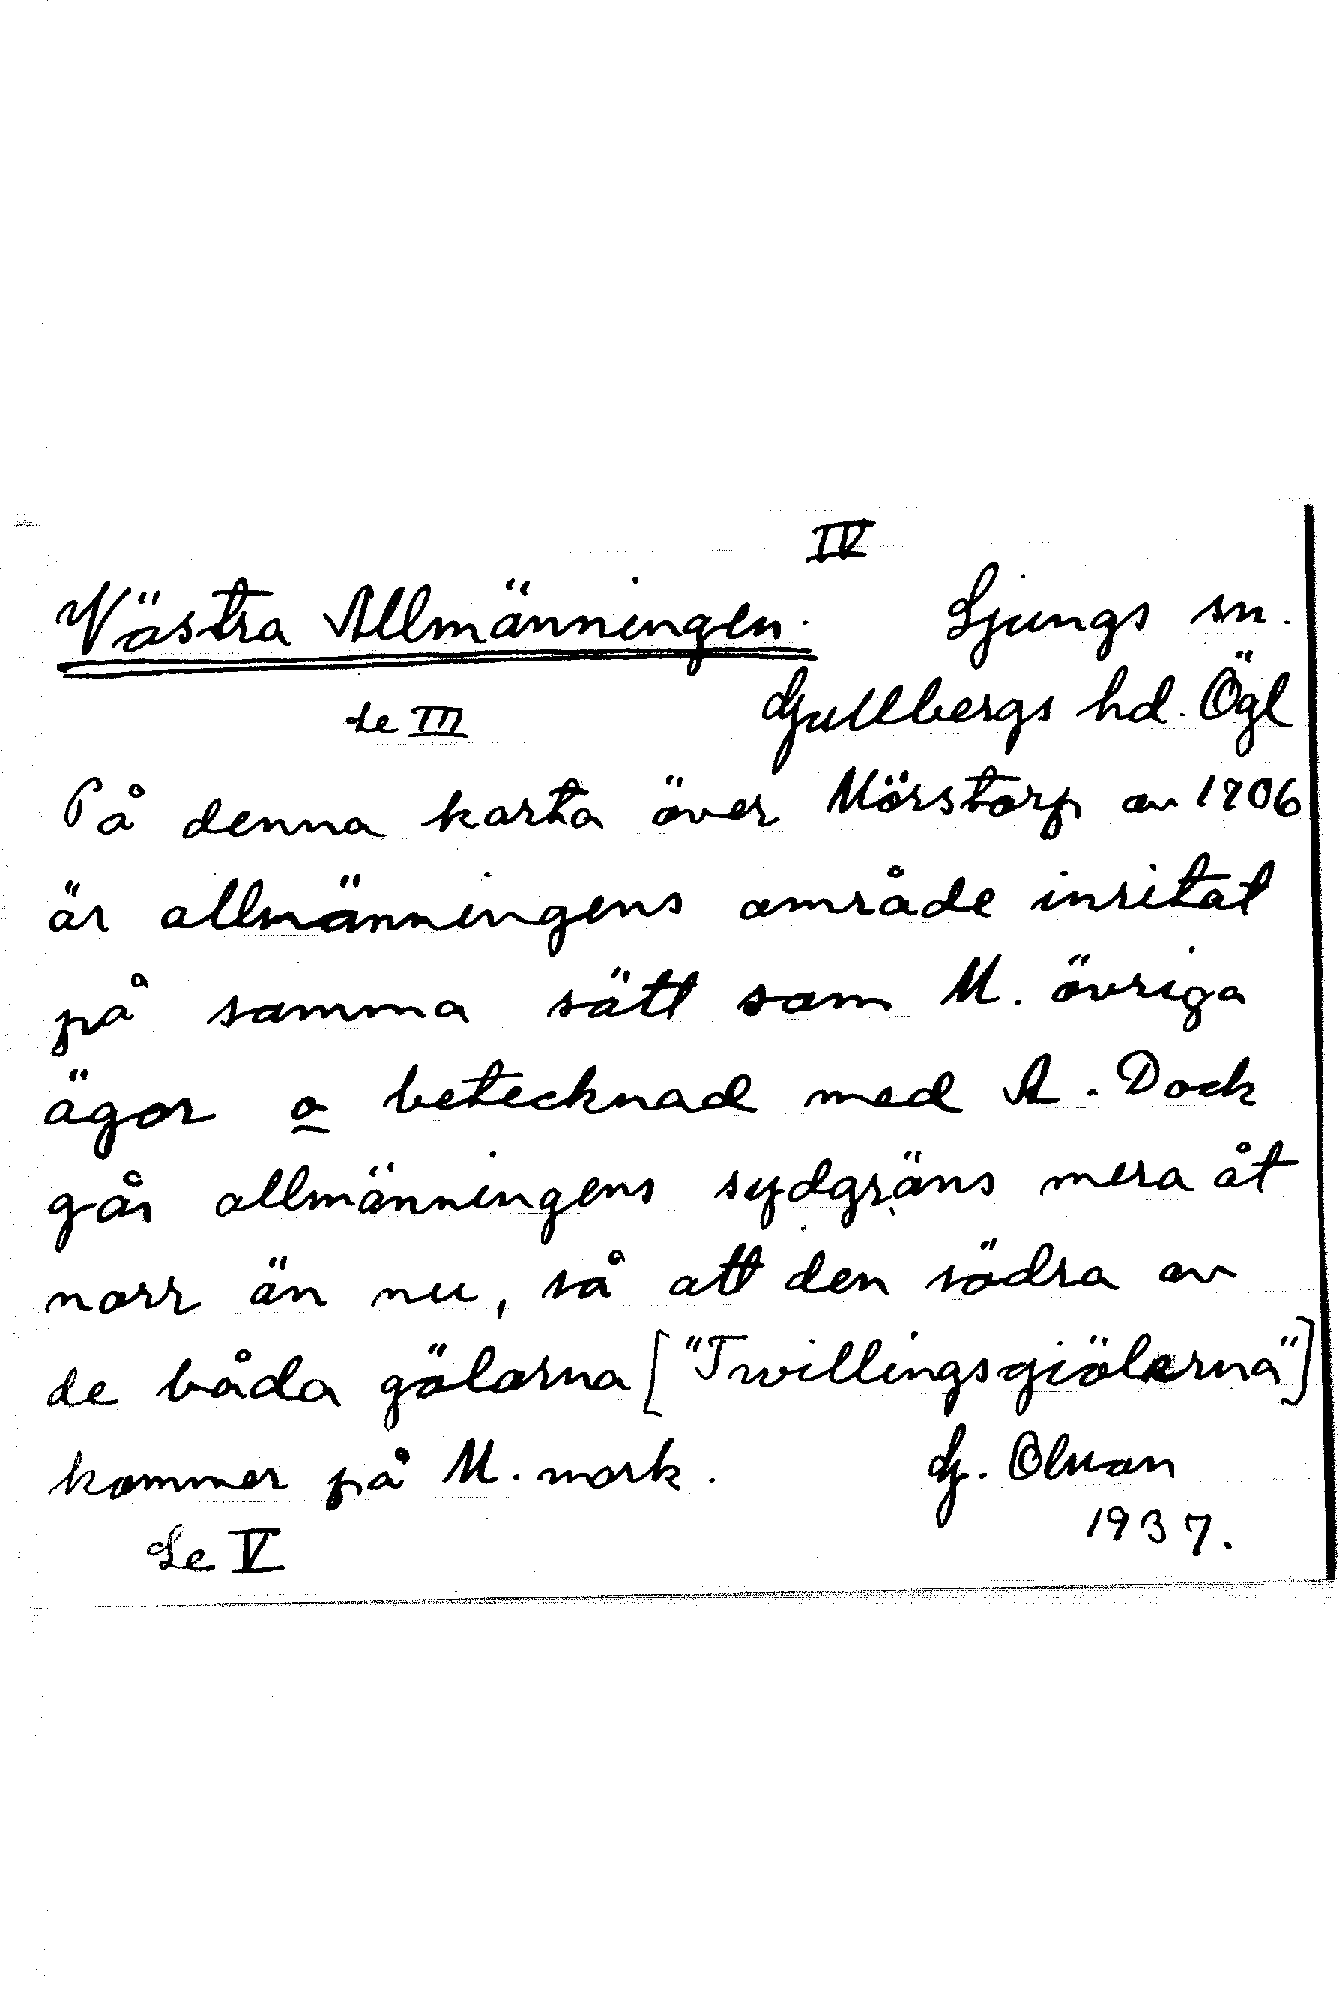 IV
Västra Allmänningen. Ljungs sn.
Se III Gullbergs hd. Ögl
På denna karta över Mörstorp av 1706
är allmänningens område inritat
på samma sätt som M. övriga
ägor o betecknad med A. Dock
går allmänningens sydgräns mera åt
norr än nu, så att den södra av
de båda gölarna ["Twillingsgiölerna"]
kommer på M. mark. G.
Se V 1937.